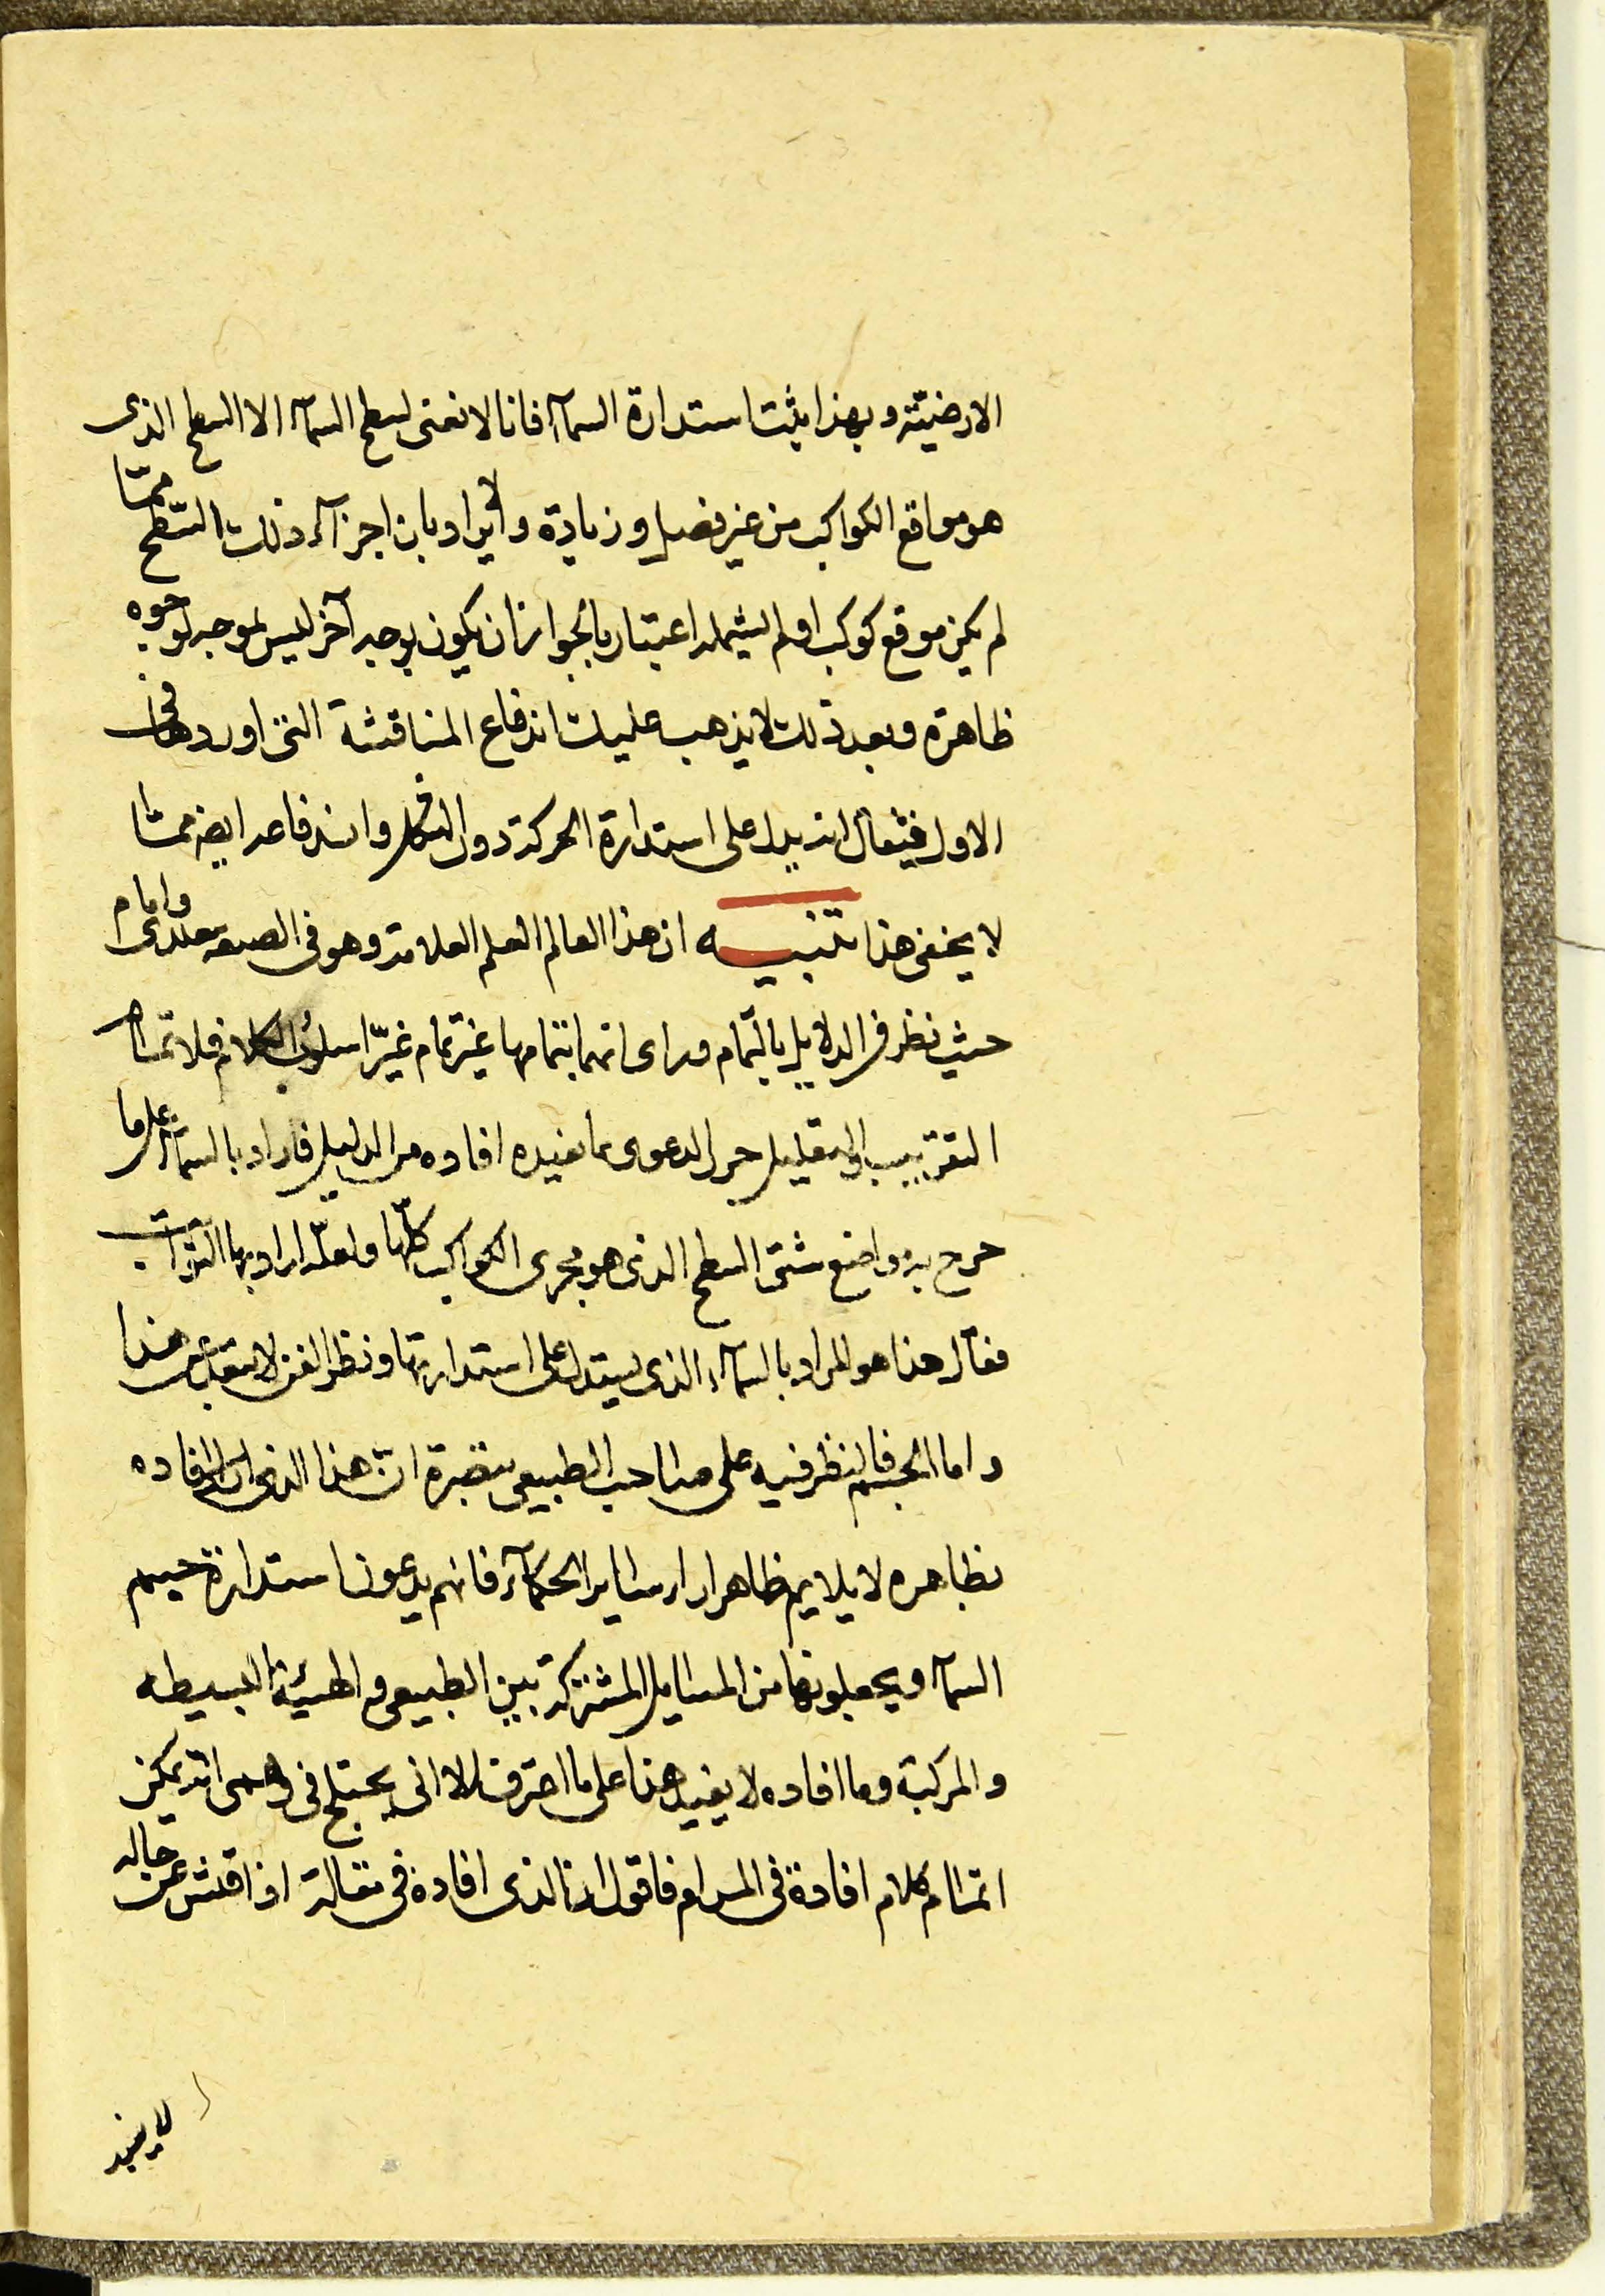 الارضية وبهذا يثبت استدارة السمآء فانا لا نعنى بسطح السمآء الا السطح الذى
هو مواقع الكواكب من غير فصل وزيادة ولا يراد بان اجزآء ذلك السّطح ممّا
لم يكن موقع كوكب او لم يشمله اعتبار بالجواز ان يكون بوجه آخر ليس بموجه لوجوه
ظاهرة وبعد ذلك لا يذهب عليك اندفاع المناقشة التى اوردها فى
الاول فيقال انه يدل على استدارة الحركة دون الشكل واندفاعه ايضا مما
لا يخفى هذا تنبيه ان هذا العالم العلم العلامة وهو فى الصنعة وامام
حيث نظر فى الدلايل بالتمام وراى انها بتمامها غير تمام غيّر اسلوب الكلام فلاتمام
التقريب والتقليل جر الدعوى بما يفيده افاده من الدليل فاراد بالسمآء على ما
صرح به مواضع شتى السطح الذى هو مجرى الكواكب كلّها ولعلّه اراد بها الثوابت
فقال هذا هو المراد بالسمآء الذى يستدل على استدارتها ونظر الفن لا يتعدى عن هذا
واما الجسم فالنظر فيه على صاحب الطبيعى تبصرة انّ هذا الذى افاده
بظاهره لا يلايم ظاهرا سائر الحكمآء فانهم يدعون استدارة جسم
السمآء ويجعلونها من المسايل المشتركة بين الطبيعى والهيئة البسيطه
والمركبة وما افاده لا يفيد هذا على ما اعترف الا انى يختلج فى وهمى انه يمكن
اتمام كلام افادة فى المرام فاقول ان الذى افاده فى مقالة اذا فتش عن حاله
لا يفيد